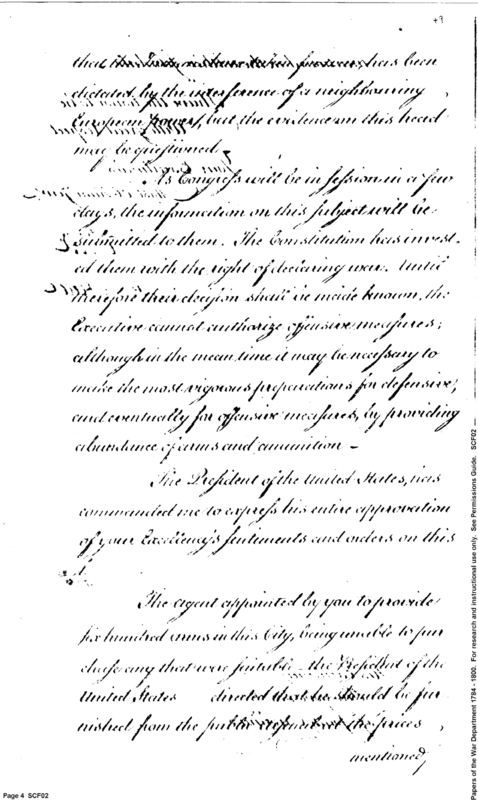 49
that the Creeks have taken has been
dictated by the interference of a neighbouring
European power, but the evidence on this head
may be questioned –
As Congress will be in session in a few
days, the information on this subject will be
submitted to them. The Constitution has invest-
ed them with the right of declaring war. Until
therefore their decision shall be made known, the
Executive cannot authorize offensive measures;
although in the mean time it may be necessary to
make the most vigorous preparations for defensive,
and eventually for offensive measures, by providing
abundance of arms and amunition –
The President of the United States, has
commanded me to express his entire approbation
of your Excellency's sentiments and orders on this
The agent appointed by you to provide
six hundred arms in this City, being unable to pur
chase any that were suitable – the President of the
United States directed that he should be fur
nished from the public at the prices
mentioned,
Page 4 SCF02
Papers of the War Department 1784 - 1800. For research and instructional use only. See Permissions Guide. SCF02